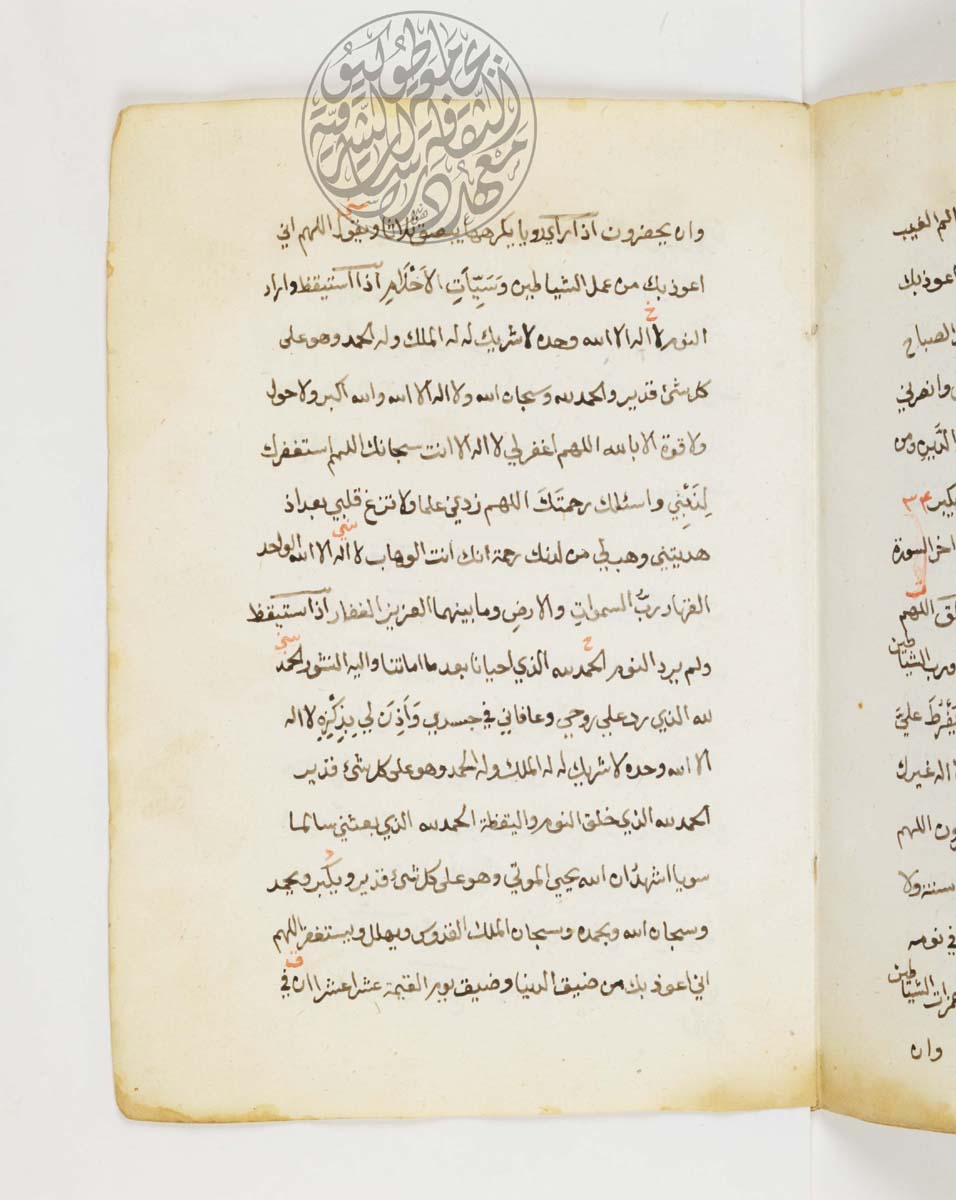 وان يحضرون اذا راي رويا يكرهها يبصق ثلاثا ويقول اللهم اني
اعوذ بك من عمل الشياطين وَسَيِّآتِ الاَحْلَامِ اذا استيقظ واراد
النوم لا اله الا الله وحده لا شريك له له الملك وله الحمد وهو على
كل شئ قدير والحمد لله وسبحان الله ولا اله الا الله والله اكبر ولا حول
ولا قوة الا بالله اللهم اغفر لي لا اله الا انت سبحانك اللهم استغفرك
لِذَنْبِي واسئلك رحمتَكَ اللهم زدني علما ولا تزغ قلبي بعد اذ
هديتني وهب لي من لدنك رحمة انك انت الوهاب لا اله الا الله الواحد
القهار ربُّ السمواتِ والارضِ وما بينهما العزيز الغفار اذا استيقظ
ولم يرد النوم الحمد لله الذي احيانا بعد ما اماتنا واليه النشور الحمد
لله الذي رد علي روحي وعافاني في جسدي وَأَذِنَ لي بِذِكْرِهِ لا اله
الا الله وحده لا شريك له له الملك وله الحمد وهو على كل شئ قدير
الحمد لله الذي خلق النوم واليقظة الحمد لله الذي بعثني سالما
سويا اشهد ان الله يحيي الموتي وهو على كل شئ قدير ويكبر ويحمد
وسبحان الله وبحمده وسبحان الملك القدوس ويهلل ويستغفر اللهم
اني اعوذ بك من ضيق الدنيا وضيق يوم القيمة عشرا عشرا ان في
الغيب
اعوذ بك
الصباح
وانصرني
الدَّينِ ومن
٣٤
اخر السورة
اللهم
ورب الشياطين
يَفْرُطَ عليَّ
اله غيرك
اللهم
سنة ولا
في نومه
همزات الشياطين
وان
معهد الدراسات الثقافة الشرقية
بجامعة طوكيو